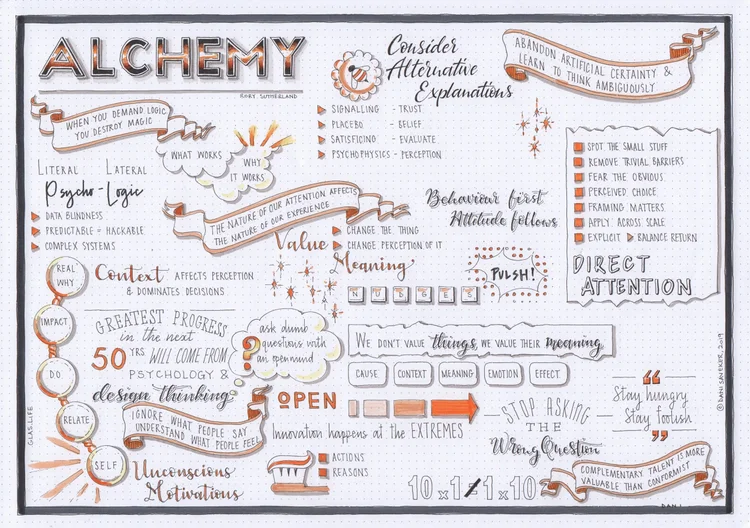 ALCHEMY
RORY SUTHERLAND
WHEN YOU DEMAND LOGIC
YOU DESTROY MAGIC
WHAT WORKS
WHY
IT WORKS
LITERAL LATERAL
Psycho-Logic
DATA BLINDNESS
PREDICTABLE = HACKABLE
COMPLEX SYSTEMS
Consider
Alternative
Explanations
SIGNALLING - TRUST
PLACEBO - BELIEF
SATISFICING - EVALUATE
PSYCHOPHYSICS - PERCEPTION
ABANDON ARTIFICIAL CERTAINTY &
LEARN TO THINK AMBIGUOUSLY
SPOT THE SMALL STUFF
REMOVE TRIVIAL BARRIERS
FEAR THE OBVIOUS
PERCEIVED CHOICE
FRAMING MATTERS
APPLY ACROSS SCALE
EXPLICIT BALANCE RETURN
DIRECT
ATTENTION
THE NATURE OF OUR ATTENTION AFFECTS
THE NATURE OF OUR EXPERIENCE
Behaviour first
Attitude follows
Value
CHANGE THE THING
CHANGE PERCEPTION OF IT
Meaning
NUDGES
PUSH!
REAL
WHY
IMPACT
DO
RELATE
SELF
Context AFFECTS PERCEPTION
& DOMINATES DECISIONS
GREATEST PROGRESS
in the next
50 YRS WILL COME FROM
PSYCHOLOGY &
design thinking
?
ask dumb
questions with
an open mind
WE DON'T VALUE things, WE VALUE THEIR meaning
CAUSE CONTEXT MEANING EMOTION EFFECT
IGNORE WHAT PEOPLE SAY
UNDERSTAND WHAT PEOPLE FEEL
OPEN
Innovation happens at the EXTREMES
STOP ASKING
THE
Wrong Question
“
Stay hungry
Stay foolish
”
Unconscious
Motivations
ACTIONS
REASONS
10 x 1 ≠ 1 x 10
COMPLEMENTARY TALENT IS MORE
VALUABLE THAN CONFORMIST
GLAS.LIFE
© DANI SAVEKER, 2019